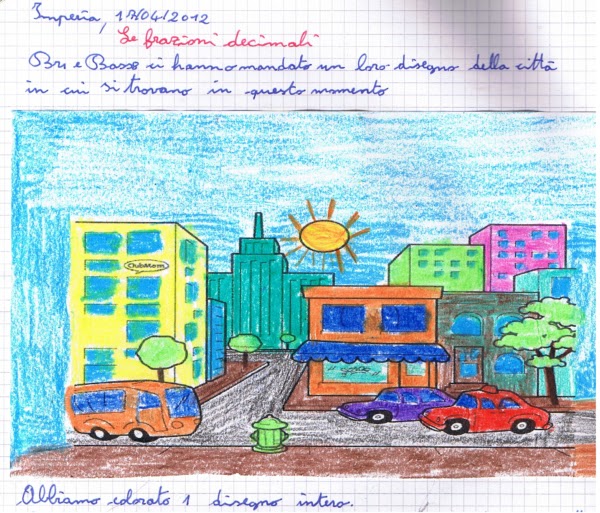 Imperia, 17/04/2012
Le frazioni decimali
Bri e Bass8 ci hanno mandato un loro disegno della città
in cui si trovano in questo momento
ClubMom
Abbiamo colorato 1 disegno intero.